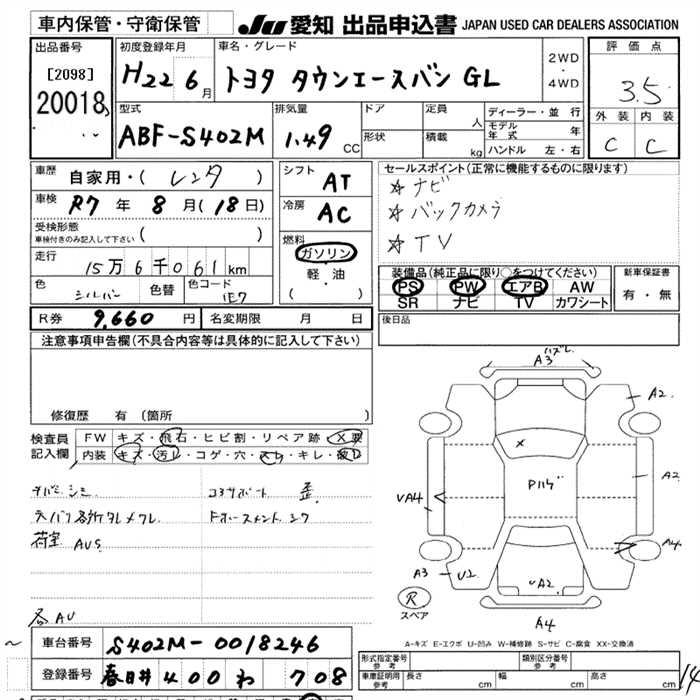 車内保管・守衛保管
JU 愛知 出品申込書 JAPAN USED CAR DEALERS ASSOCIATION
出品番号
[2098]
20018
初度登録年月
H22 6月
車名・グレード
トヨタ タウンエースバン GL
2WD・4WD
評価点
3.5
外装 内装
C C
型式
ABF-S402M
排気量
1.49 CC
ドア
形状
定員 人
積載 kg
ディーラー・並行
モデル年式 年
ハンドル 左・右
車歴 自家用・( レンタ )
車検 R7 年 8 月 ( 18 日)
受検形態
車検付きのみ記入して下さい ( )
走行 15万6千061km
色 シルバー 色替 色コード 1E7
シフト AT
冷房 AC
燃料
ガソリン・
軽・油
( )
セールスポイント(正常に機能するものに限ります)
☆ ナビ
☆ バックカメラ
☆ TV
装備品(純正品に限り○をつけてください)
PS PW エアB AW
SR ナビ TV カワシート
新車保証書
有・無
R券 9,660 円 名変期限 月 日
後日品
注意事項申告欄(不具合内容等は具体的に記入して下さい)
修復歴 有 (箇所 )
検査員記入欄
FW キズ・飛石・ヒビ割・リペア跡・X要
内装 キズ・汚レ・コゲ・穴・スレ・キレ・破レ
コアサポート 歪
荷室 AUS
各AU
A3 ハズレ
A2
X
Pハゲ
A2
VA4
A4
A3 U2
A2
R
スペア
A4
A-キズ E-エクボ U-凹み W-補修跡 S-サビ C-腐食 XX-交換済
車台番号 S402M-0018246
登録番号 春日井 400 わ 708
形式指定番号
参考
類別区分番号
参考
車庫証明用
参考
長さ cm 幅 cm 高さ cm